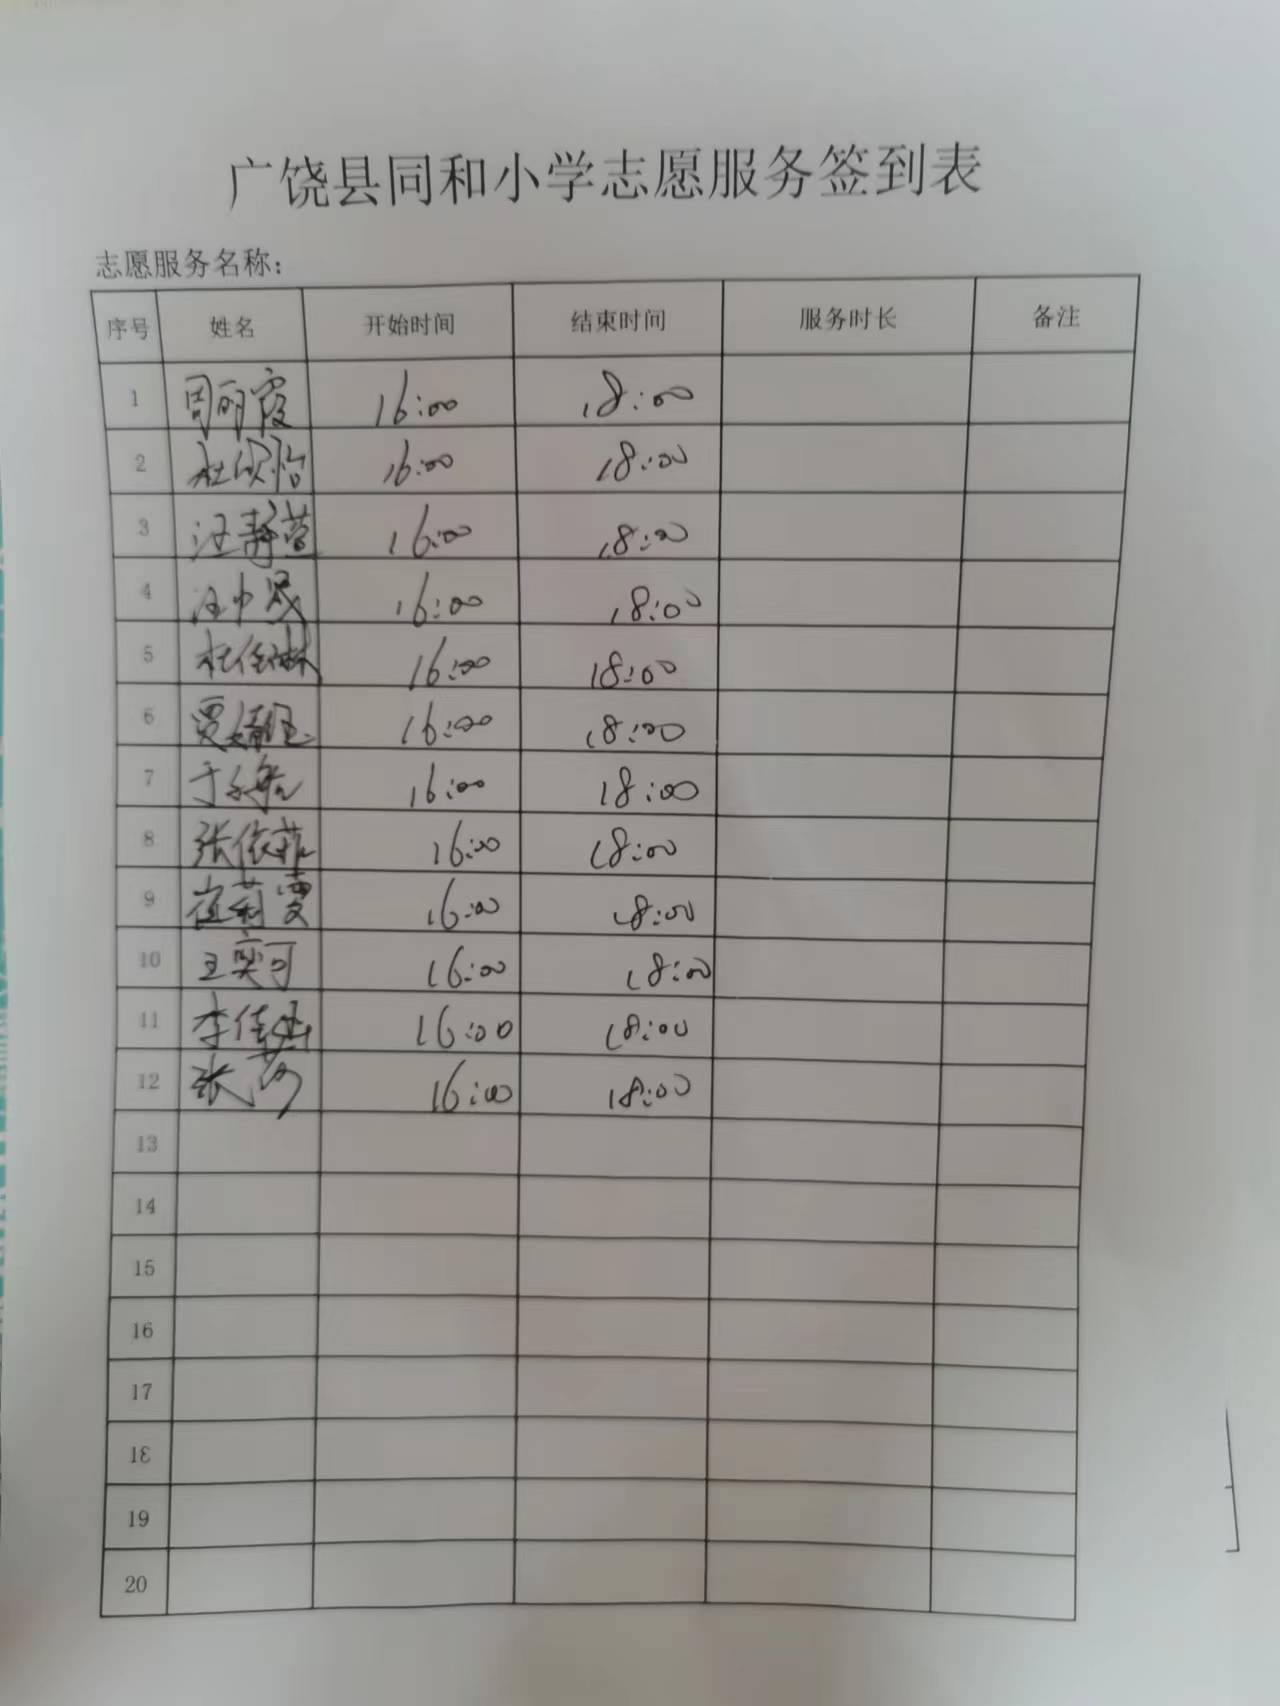 广饶县同和小学志愿服务签到表
志愿服务名称：
序号 姓名 开始时间 结束时间 服务时长 备注
1 周丽霞 16:00 18:00
2 杜欣怡 16:00 18:00
3 汪静萱 16:00 18:00
4 汪中晟 16:00 18:00
5 杜佳琳 16:00 18:00
6 贾婧 16:00 18:00
7 于 16:00 18:00
8 张依菲 16:00 18:00
9 崔莉雯 16:00 18:00
10 王奕可 16:00 18:00
11 李佳 16:00 18:00
12 张莎 16:00 18:00
13
14
15
16
17
18
19
20